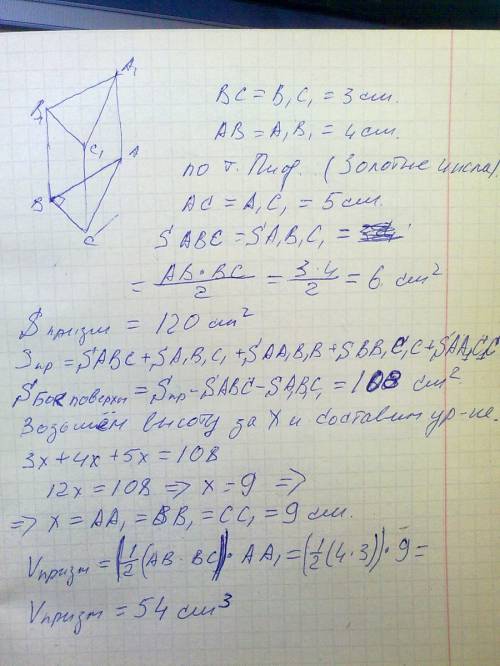 A₁
B₁
C₁
A
B
C
BC = B₁C₁ = 3 см.
AB = A₁B₁ = 4 см.
по т. Пиф. (Золотые числа)
AC = A₁C₁ = 5 см.
SABC = SA₁B₁C₁ =
= AB·BC/2 = 3·4/2 = 6 см²
Sпризм = 120 см²
Sпр = SABC + SA₁B₁C₁ + SAA₁B₁B + SBB₁C₁C + SAA₁C₁C
SБок поверхн = Sпр - SABC - SA₁B₁C₁ = 108 см²
Возьмём высоту за X и составим ур-не.
3x + 4x + 5x = 108
12x = 108 => x = 9 =>
=> x = AA₁ = BB₁ = CC₁ = 9 см.
Vпризм = (1/2(AB·BC))·AA₁ = (1/2(4·3))·9 =
Vпризм = 54 см³